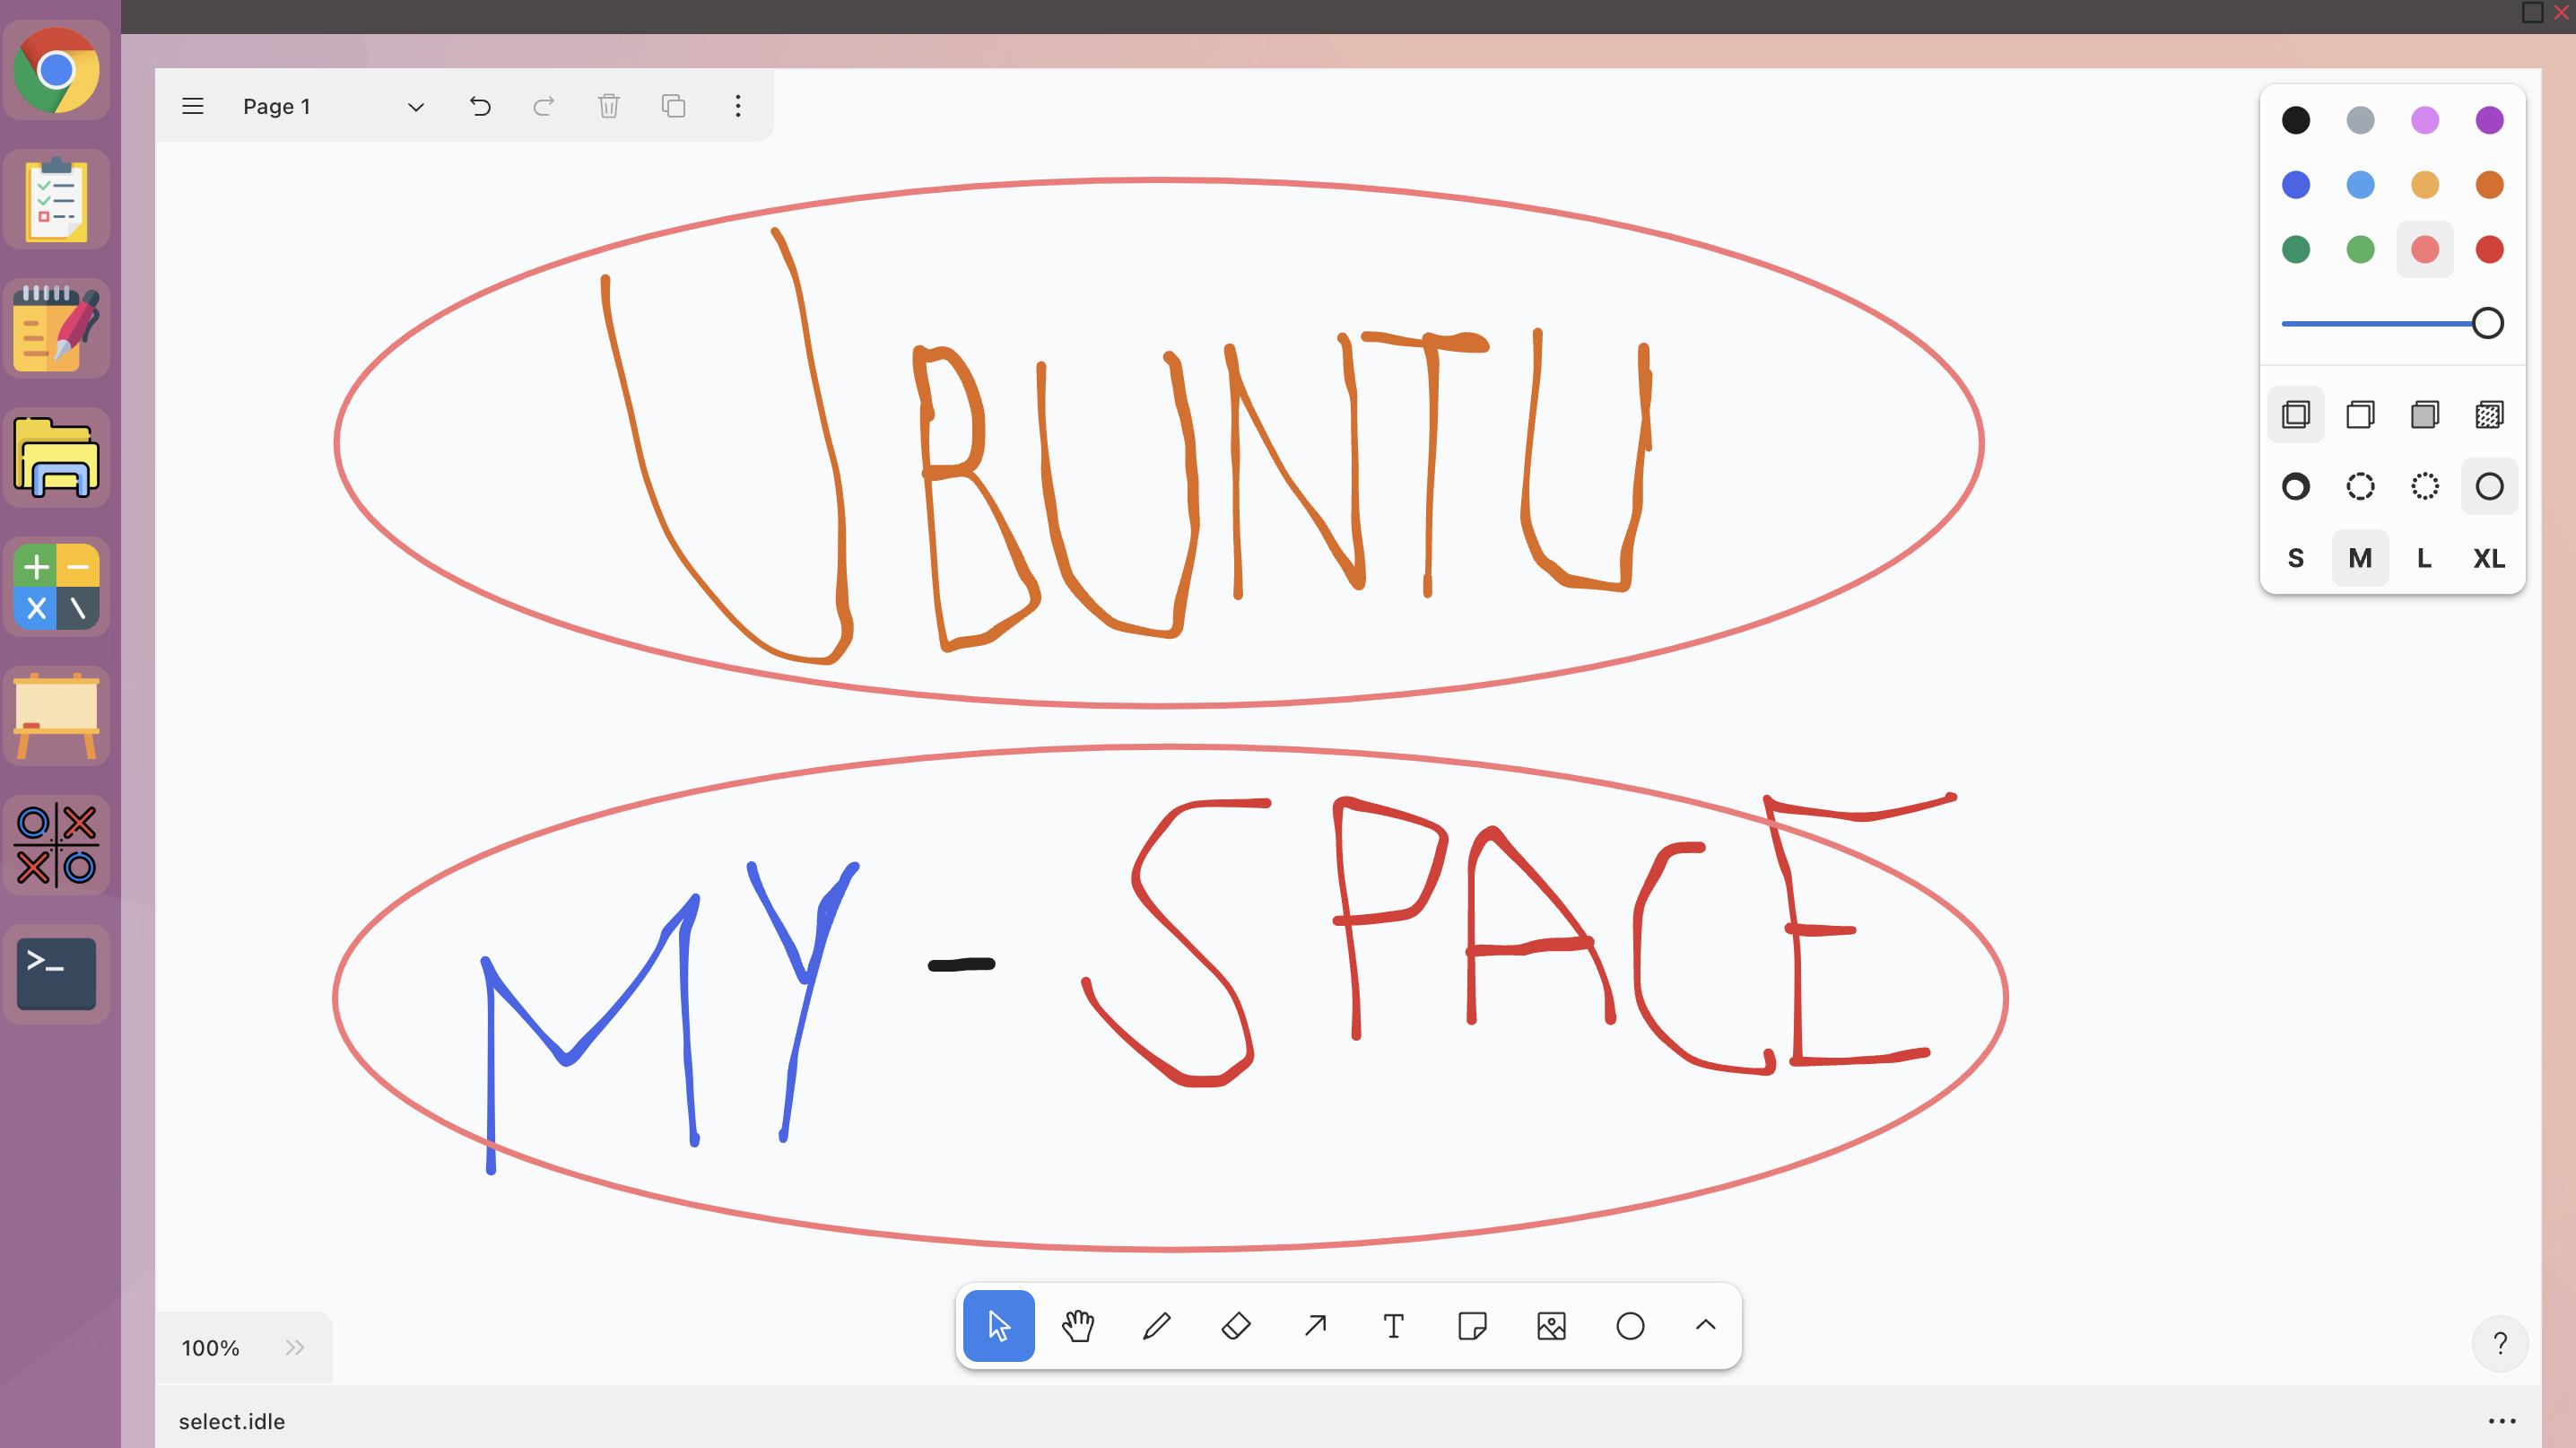 Page 1
UBUNTU
MY - SPACE
S M L XL
100%
?
select.idle